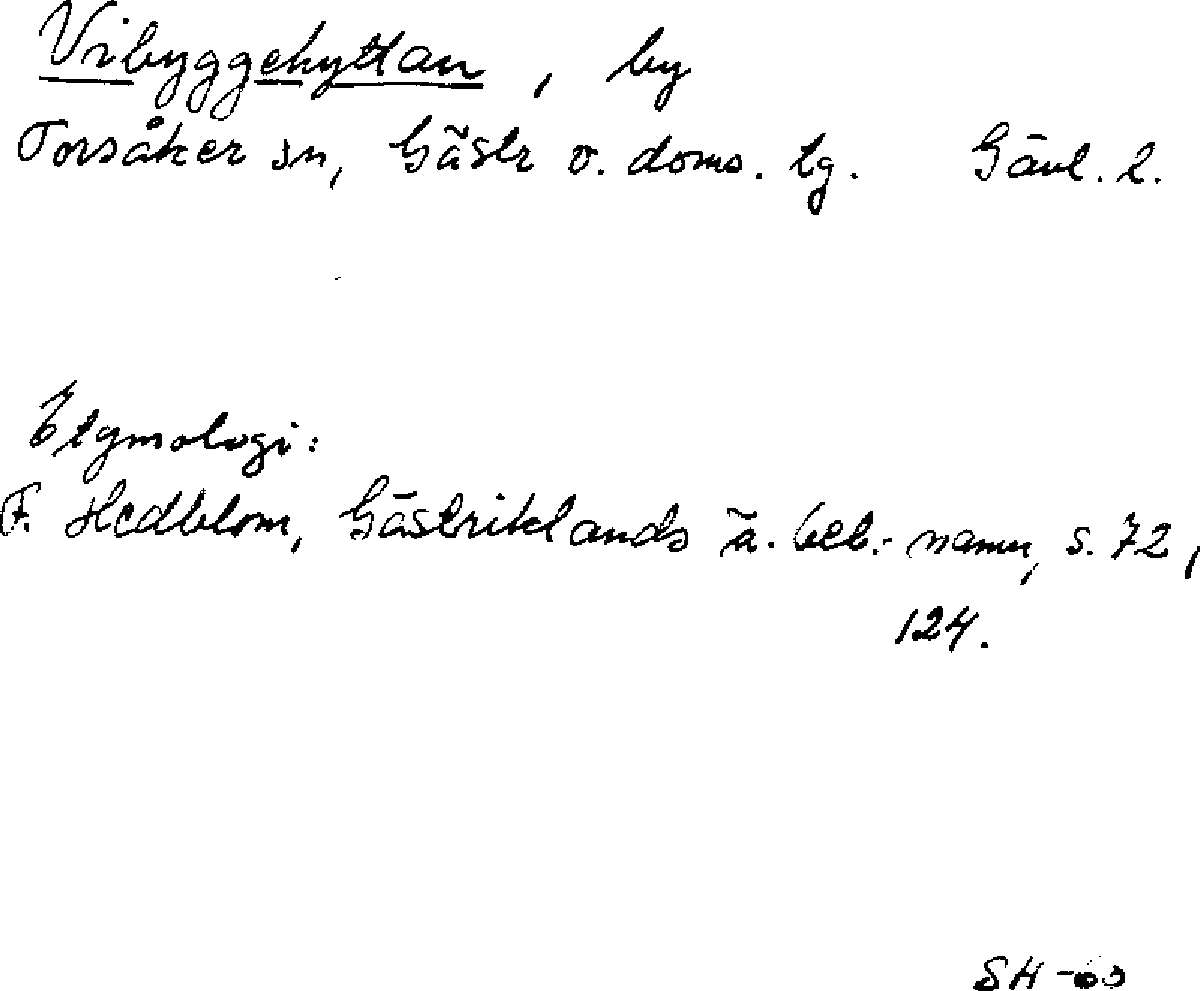 Vibyggehyttan, by
Torsåker sn, Gästr v. doms. tg. Gävl. l.
Etymologi:
F. Hedblom, Gästriklands ä. beb.-namn, s. 72,
124.
SH-60